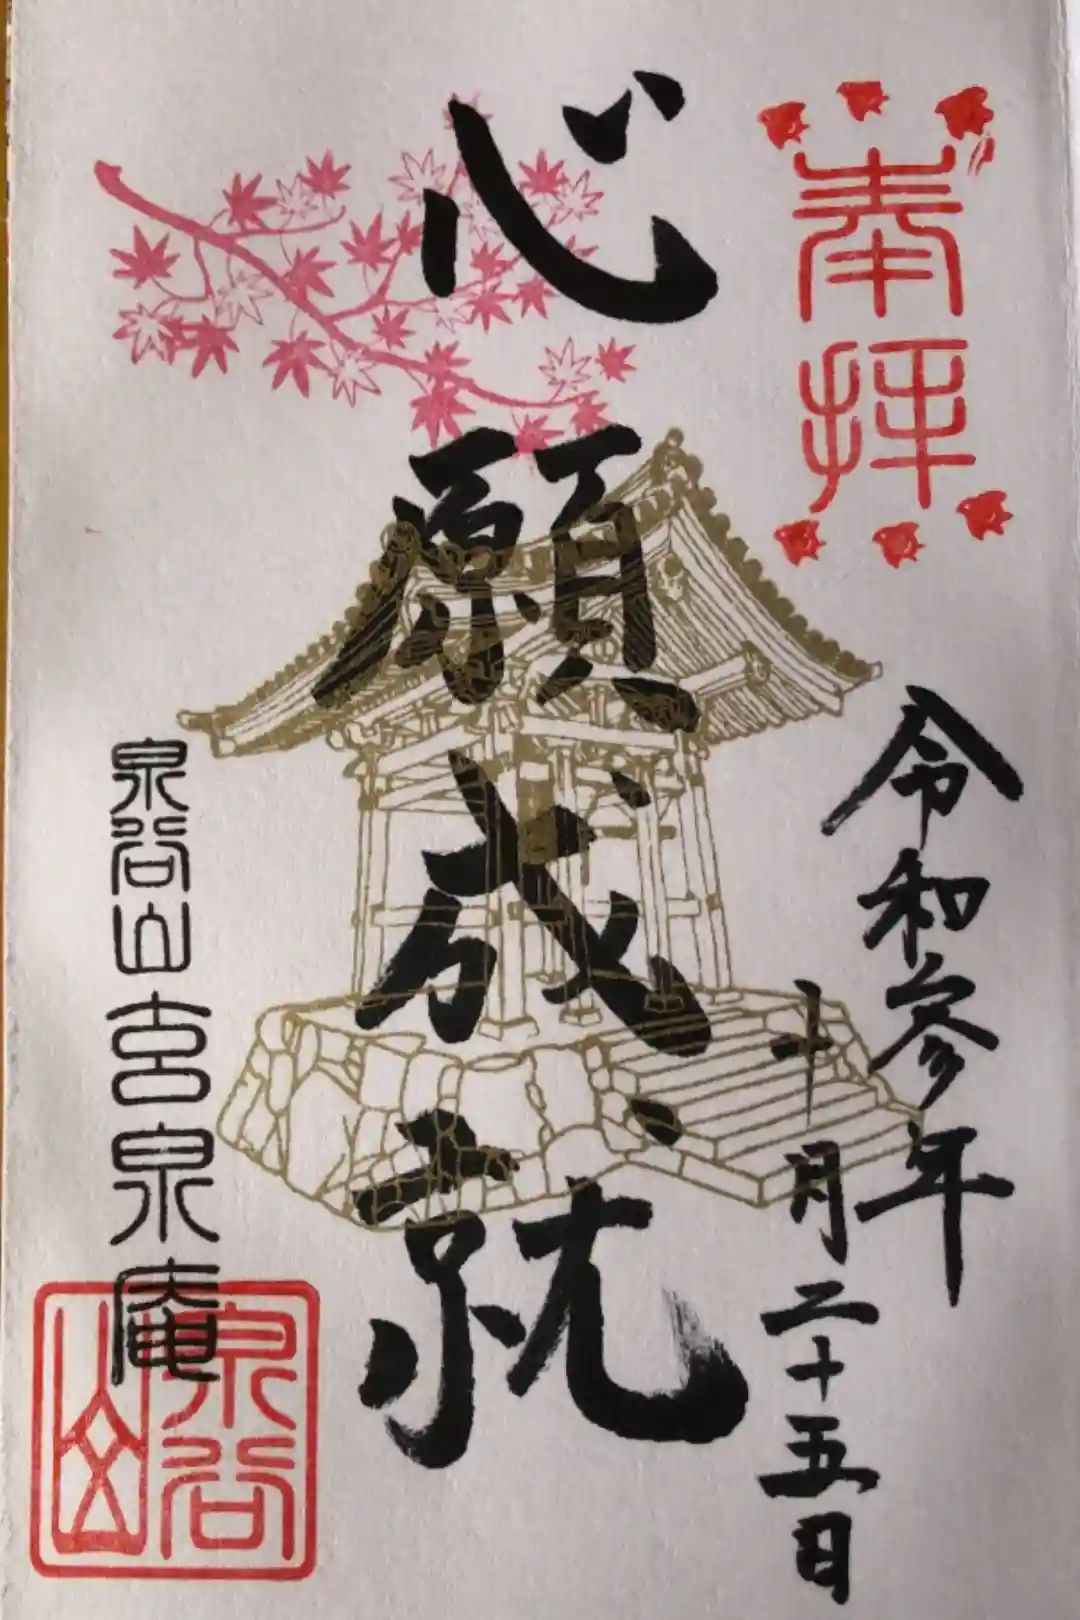 奉拝
令和参年
十月二十五日
心願成就
泉谷山古泉庵
泉谷山